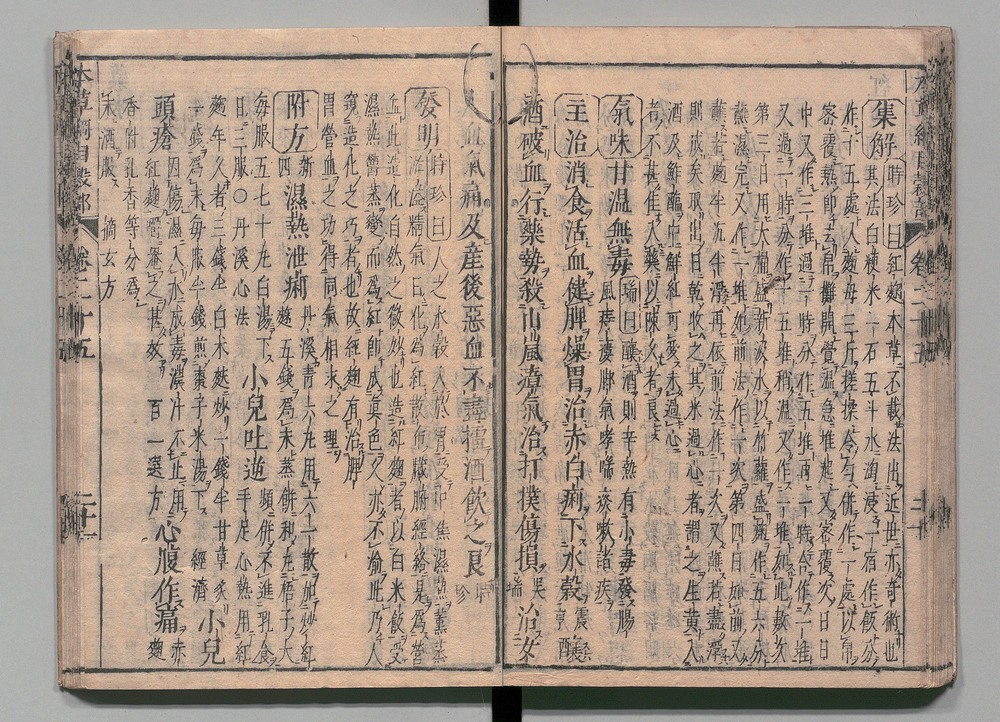 本草綱目穀部 卷二十五 二十
集解 時珍曰紅麴本草不載法出近世亦奇術也
其法白粳米一石五斗水淘浸一宿作飯分
作十五處入麴母三斤搓揉令匀併作一處以帛
密覆熱即去帛攤開覺溫急堆起又密覆次日日
中又作三堆過一時分作五堆再一時合作一堆
又過一時分作十五堆稍溫又作一堆如此數次
第三日用大桶盛新汲水以竹籮盛麴作五六分
蘸濕完又作一堆如前法作一次第四日如前又
蘸若麴半沉半浮再依前法作一次又蘸若盡浮
則成矣取出日乾收之其米過心者謂之生黄入
酒及鮓醢中鮮紅可愛未過心
者不甚佳入藥以陳久者良
氣味甘溫無毒 瑞曰釀酒則辛熱有小毒發腸
風痔瘻脚氣哮喘痰嗽諸疾
主治消食活血健脾燥胃治赤白痢下水穀震亨釀
酒破血行藥勢殺山嵐瘴氣治打撲傷損吳瑞治女
人血氣痛及産後惡血不盡擂酒飲之良時珍
發明 時珍曰人之水穀入於胃受中焦濕熱薰蒸
游溢精氣日化爲紅散布臟腑經絡是爲營
血此造化自然之微妙也造紅麴者以白米飯受
濕熱鬱蒸變而爲紅即成真色久亦不渝此乃人
窺造化之巧者也故紅麴有治脾
胃營血之功得同氣相求之理
附方新四 濕熱泄痢丹溪青六丸用六一散加炒紅
麴五錢爲末蒸餅和丸梧子大
每服五七十丸白湯下
日三服○丹溪心法 小兒吐逆頻併不進乳食
手足心熱用紅
麴年久者三錢半白朮麩炒一錢半甘草炙
一錢爲末每服半錢煎棗子米湯下 經濟 小兒
頭瘡因傷濕入水成毒濃汁不止用
紅麴嚼罨之甚效 百一選方 心腹作痛赤麴
香附乳香等分爲
末酒服 摘玄方
本草綱目穀部 卷二十五 二十一